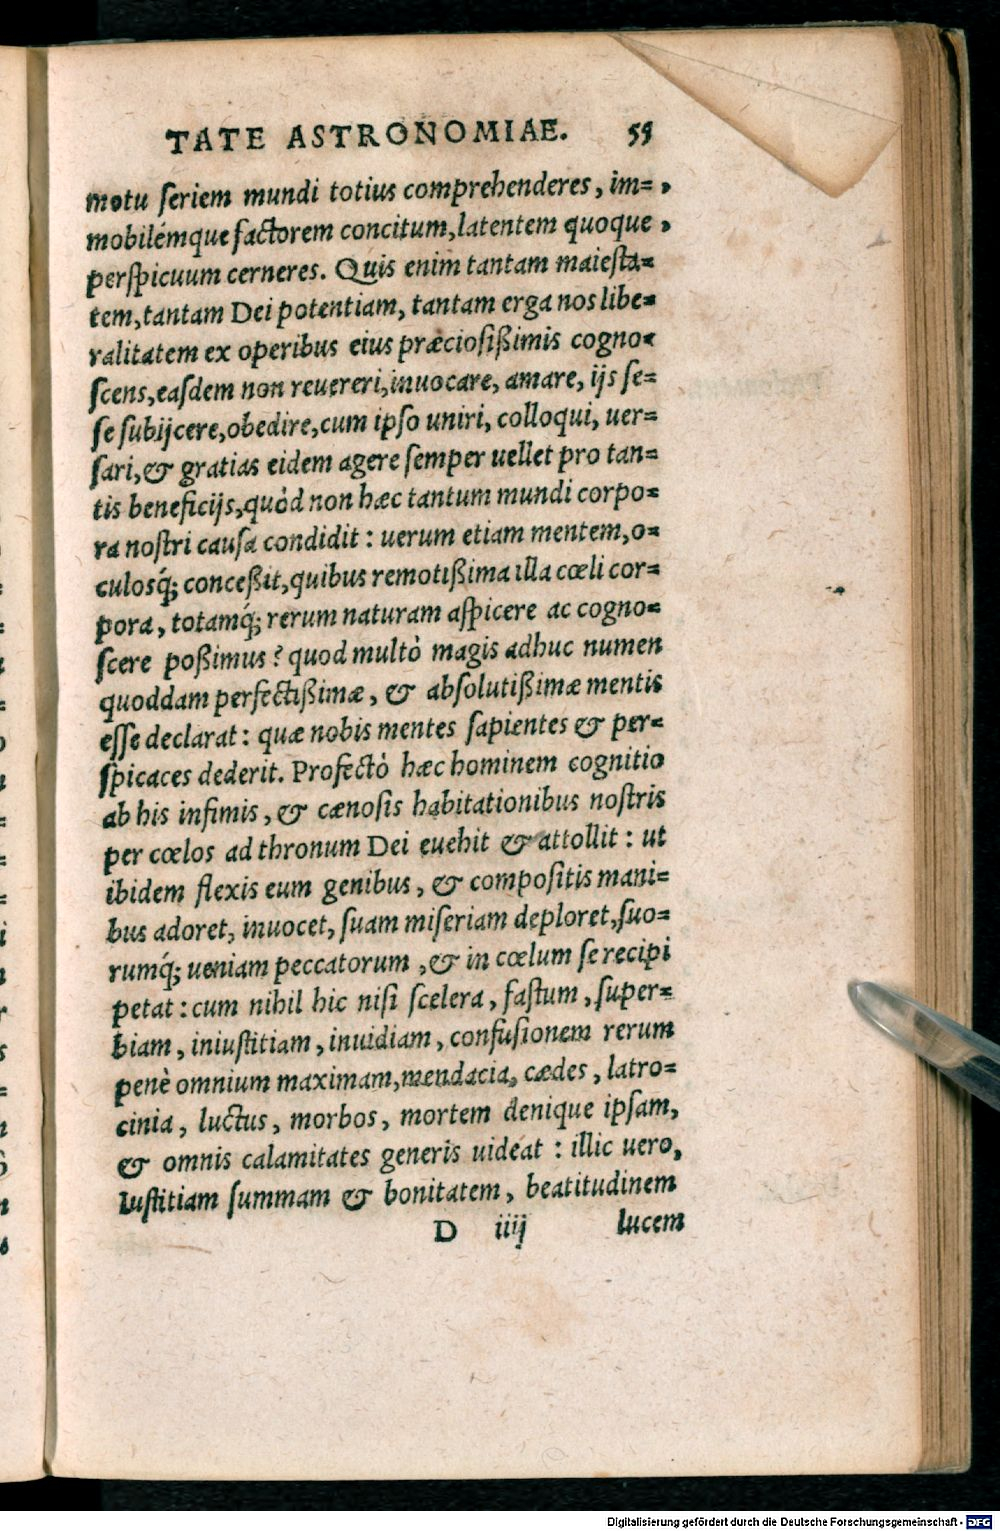 TATE ASTRONOMIAE. 55
motu seriem mundi totius comprehenderes, im= ,
mobilémque factorem concitum,latentem quoque ,
perspicuum cerneres. Quis enim tantam maiesta=
tem,tantam Dei potentiam, tantam erga nos libe=
ralitatem ex operibus eius præciosißimis cogno=
scens,easdem non reuereri,inuocare, amare, ijs se=
se subijcere,obedire,cum ipso uniri, colloqui, uer=
sari,& gratias eidem agere semper uellet pro tan=
tis beneficijs,quòd non hæc tantum mundi corpo=
ra nostri causa condidit : uerum etiam mentem,o=
culosq́; conceßit,quibus remotißima illa cœli cor=
pora, totamq́; rerum naturam aspicere ac cogno=
scere poßimus ? quod multò magis adhuc numen
quoddam perfectißimæ, & absolutißimæ mentis
esse declarat : quæ nobis mentes sapientes & per=
spicaces dederit. Profectò hæc hominem cognitio
ab his infimis, & cænosis habitationibus nostris
per cœlos ad thronum Dei euehit & attollit : ut
ibidem flexis eum genibus, & compositis mani=
bus adoret, inuocet, suam miseriam deploret,suo=
rumq́; ueniam peccatorum ,& in cœlum se recipi
petat : cum nihil hic nisi scelera, fastum, super=
biam, iniustitiam, inuidiam, confusionem rerum
penè omnium maximam,mendacia, cædes, latro=
cinia, luctus, morbos, mortem denique ipsam,
& omnis calamitates generis uideat : illic uero,
Iustitiam summam & bonitatem, beatitudinem
D iiij lucem
Digitalisierung gefördert durch die Deutsche Forschungsgemeinschaft - DFG